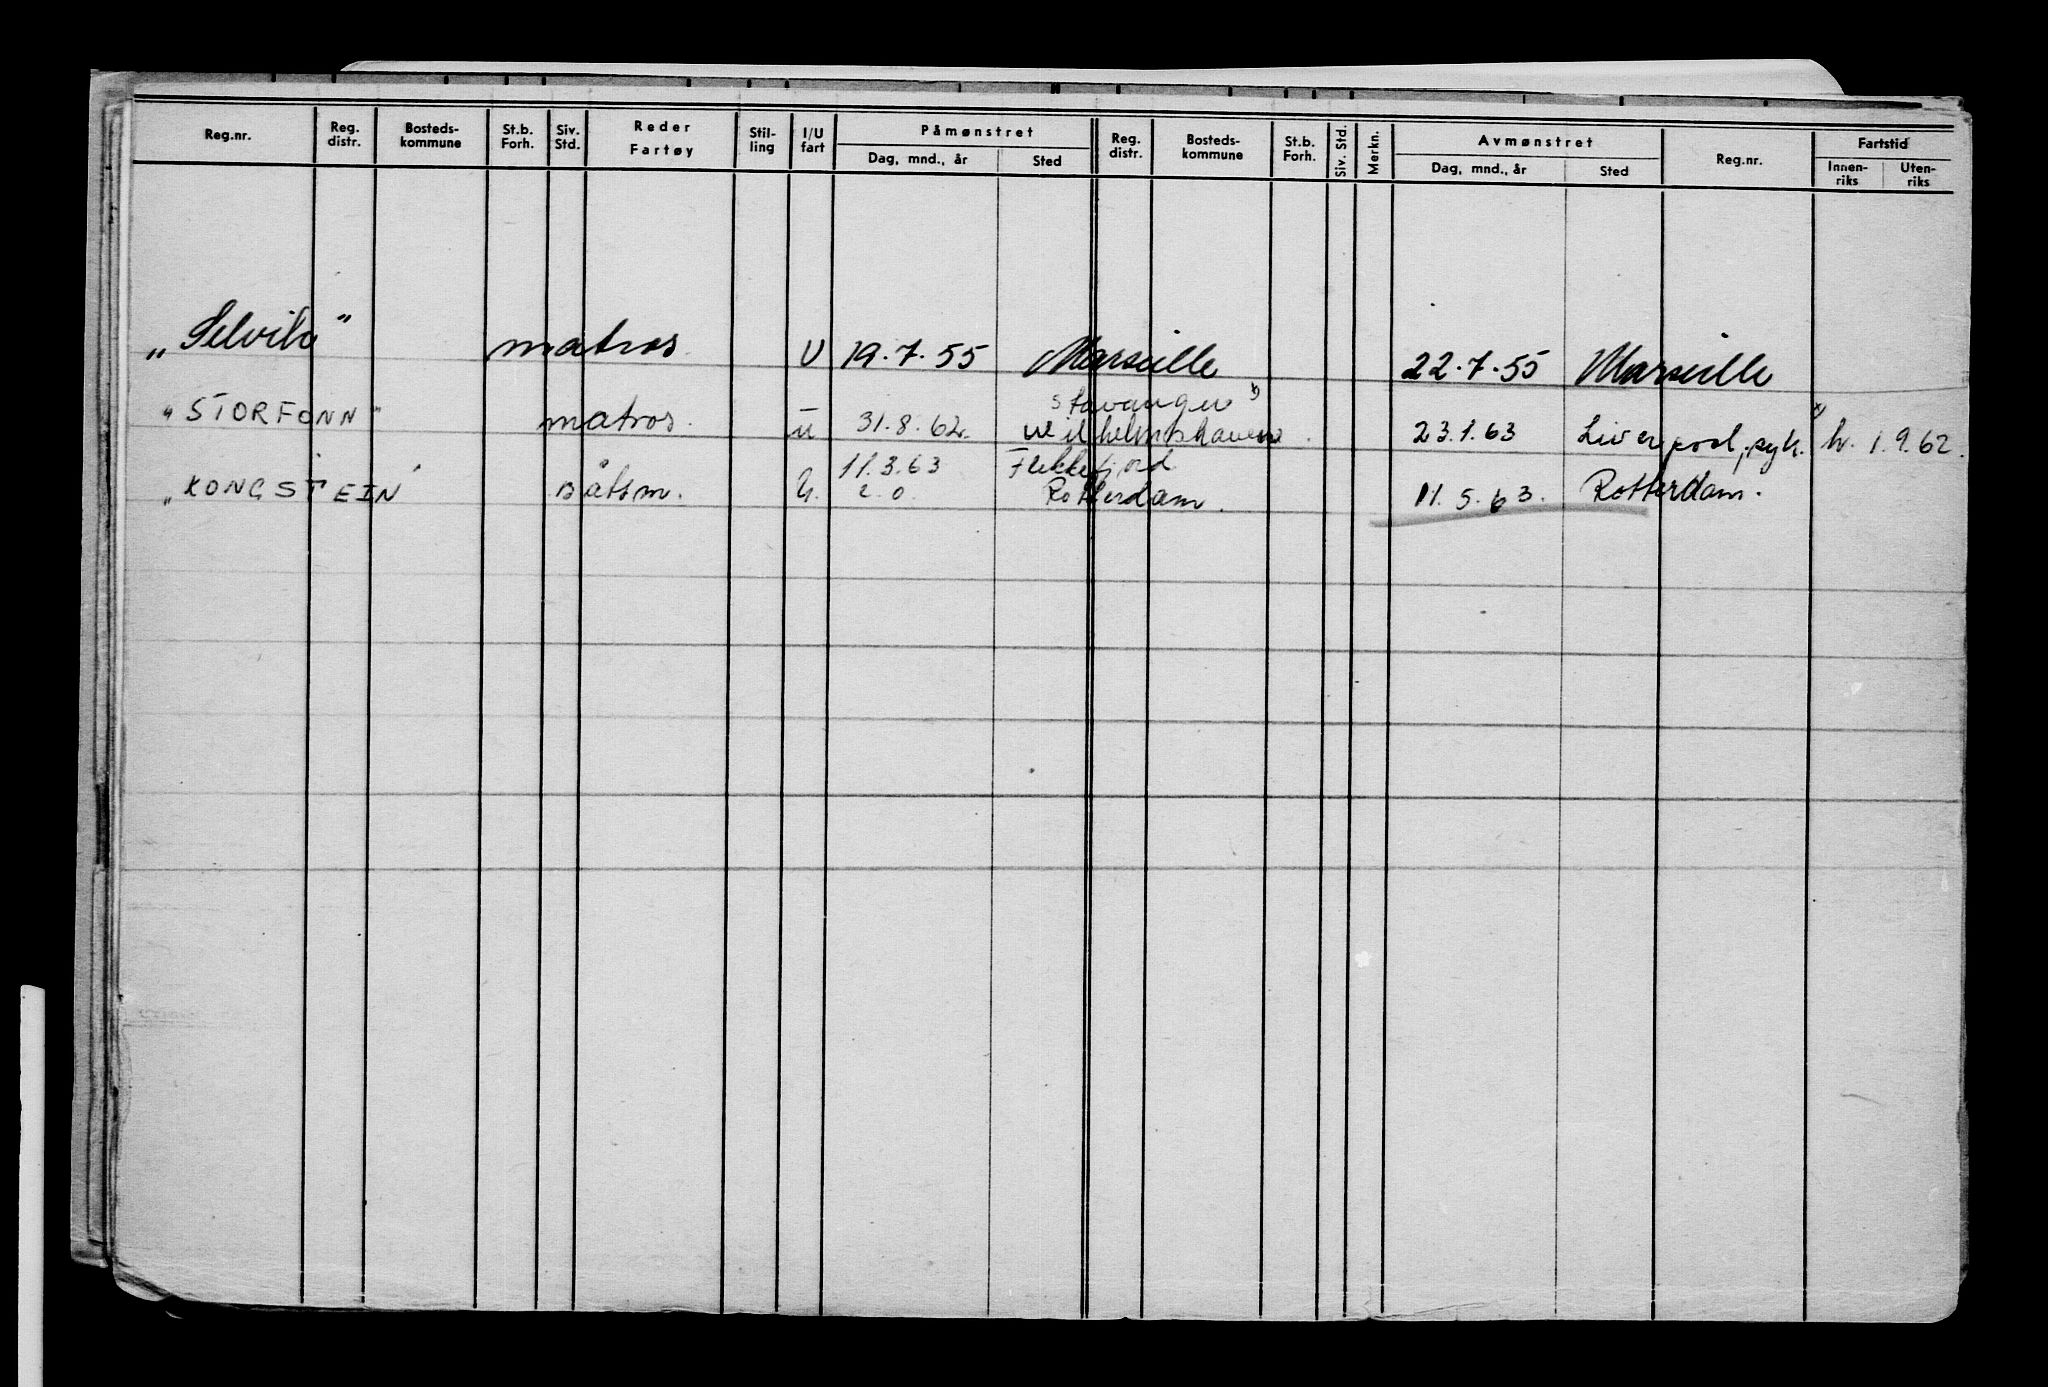 Reg.nr. Reg. distr. Bosteds-kommune St.b. Forh. Siv. Std. Reder Fartøy Stil-ling I/U fart Påmønstret Dag, mnd., år Sted Reg. distr. Bosteds-kommune St.b. Forh. Siv. Std. Merkn. Avmønstret Dag, mnd., år Sted Reg.nr. Fartstid Innen-riks Uten-riks
„Selvik" matros. U 19.7.55 Marseille 22.7.55 Marseille
Stavanger
"STORFONN" matros. u 31.8.62. Wilhelmshaven. 23.1.63 Liverpool, syk. h. 1.9.62.
11.3.63 Flekkefjord
„KONGSTEIN" Båtsm. U. e.o. Rotterdam. 11.5.63. Rotterdam.